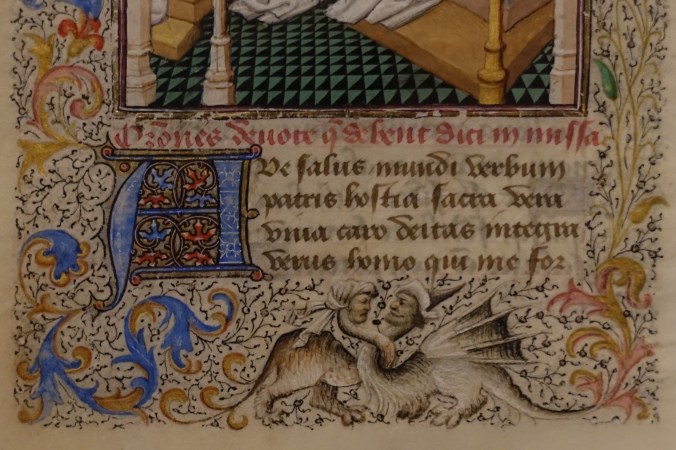 Orõnes deuote q̃ debent dici in missa
AVe salus mundi verbum
patris hostia sacra vera
viua caro deitas integra
verus homo qui me for